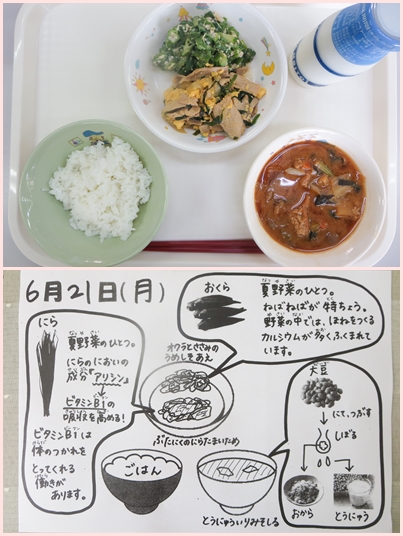 6月21日(月)
にら
夏野菜のひとつ。
にらのにおいの
成分「アリシン」
ビタミンB1の
吸収を高める!
ビタミンB1は
体のつかれを
とってくれる
働きが
あります。
おくら
夏野菜のひとつ。
ねばねばが特ちょう。
野菜の中では、ほねをつくる
カルシウムが多くふくまれて
います。
オクラとささみの
うめしそあえ
ぶたにくのにらたまいため
ごはん
とうにゅういりみそしる
大豆
にて、つぶす
しぼる
おから
とうにゅう